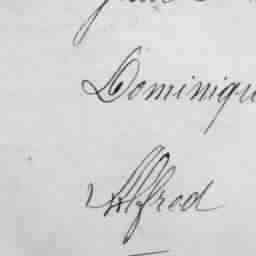 Dominiqu
Alfred